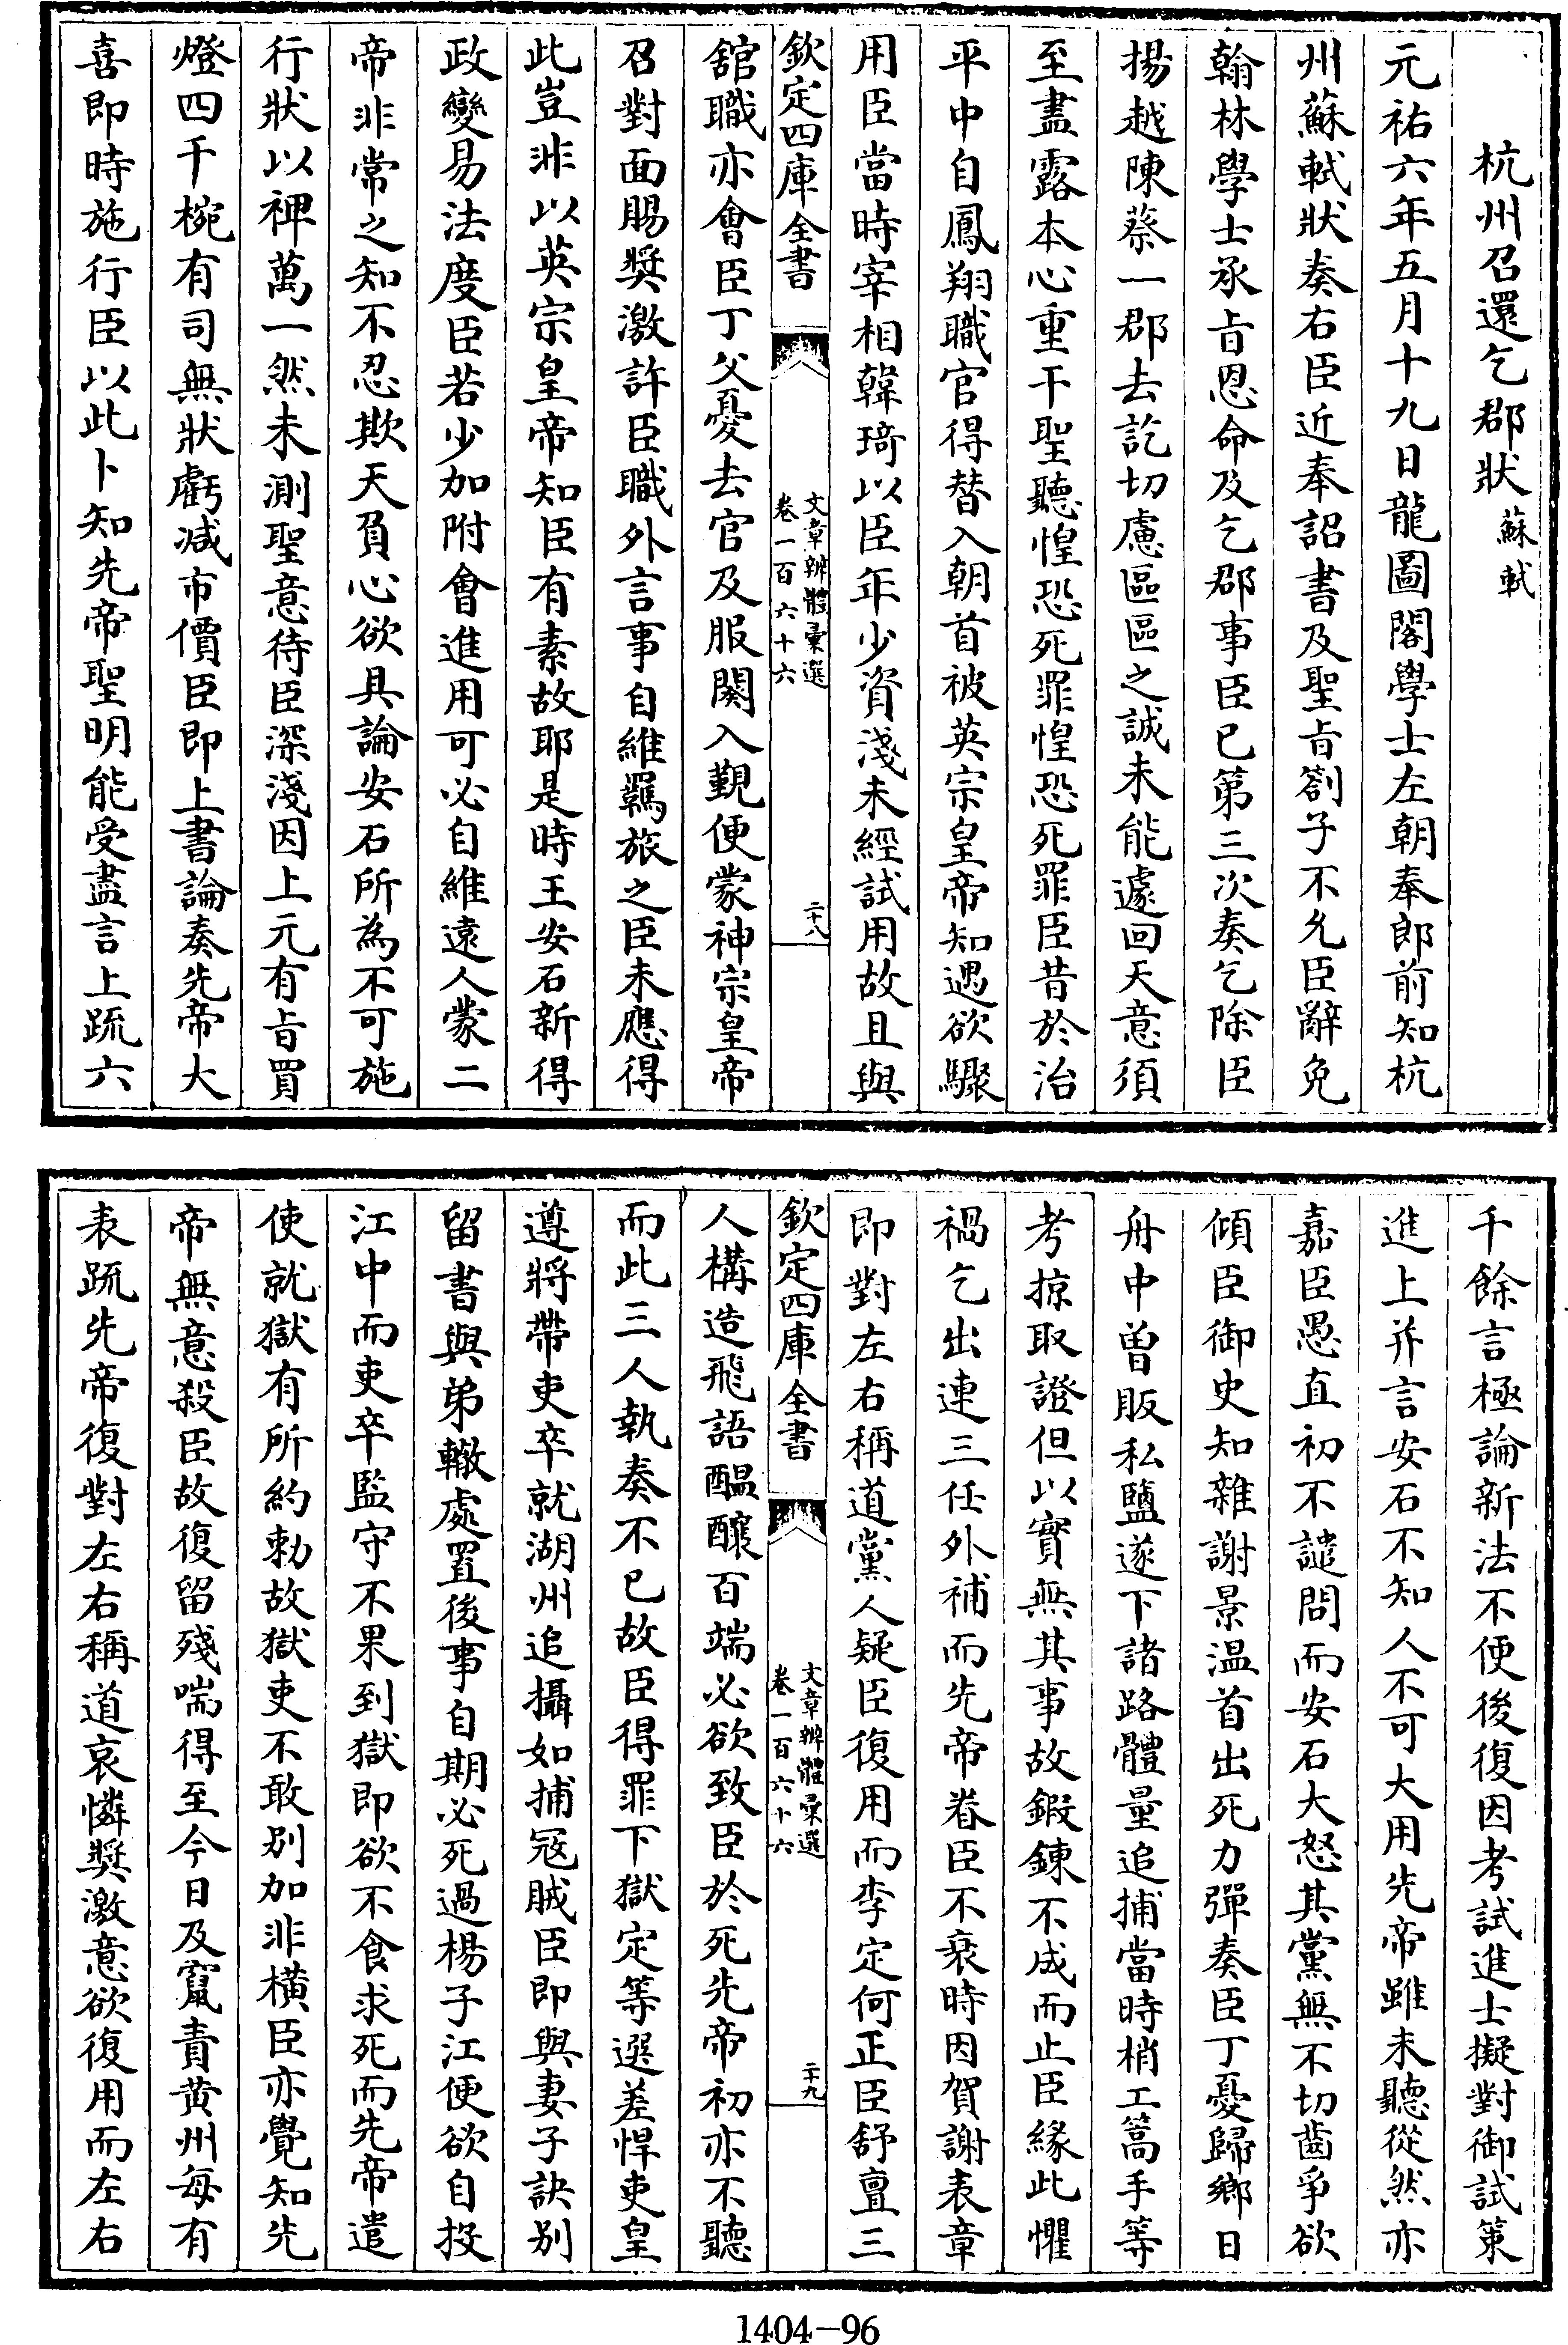 杭州召還乞郡狀 蘇軾
元祐六年五月十九日龍圖閣學士左朝奉郎前知杭
州蘇軾狀奏右臣近奉詔書及聖㫖劄子不允臣辭免
翰林學士承㫖恩命及乞郡事臣已第三次奏乞除臣
揚越陳蔡一郡去訖切慮區區之誠未能遽回天意須
至盡露本心重干聖聽惶恐死罪惶恐死罪臣昔於治
平中自鳳翔職官得替入朝首被英宗皇帝知遇欲驟
用臣當時宰相韓琦以臣年少資淺未經試用故且與
欽定四庫全書 文章辨體彙選 卷一百六十六 二十八
舘職亦會臣丁父憂去官及服闋入覲便蒙神宗皇帝
召對面賜奬激許臣職外言事自維羈旅之臣未應得
此豈非以英宗皇帝知臣有素故耶是時王安石新得
政變易法度臣若少加附會進用可必自維遠人蒙二
帝非常之知不忍欺天負心欲具論安石所為不可施
行狀以裨萬一然未測聖意待臣深淺因上元有㫖買
燈四千椀有司無狀虧减市價臣即上書論奏先帝大
喜即時施行臣以此卜知先帝聖明能受盡言上疏六
千餘言極論新法不便後復因考試進士擬對御試策
進上并言安石不知人不可大用先帝雖未聽從然亦
嘉臣愚直初不譴問而安石大怒其黨無不切齒爭欲
傾臣御史知雜謝景温首出死力彈奏臣丁憂歸鄉日
舟中曽販私鹽遂下諸路體量追捕當時梢工篙手等
考掠取證但以實無其事故鍜鍊不成而止臣緣此懼
禍乞出連三任外補而先帝眷臣不衰時因賀謝表章
即對左右稱道黨人疑臣復用而李定何正臣舒亶三
欽定四庫全書 文章辨體彙選 卷一百六十六 二十九
人構造飛語醖釀百端必欲致臣於死先帝初亦不聽
而此三人執奏不已故臣得罪下獄定等選差悍吏皇
遵將帶吏卒就湖州追攝如捕冦賊臣即與妻子訣别
留書與弟轍處置後事自期必死過楊子江便欲自投
江中而吏卒監守不果到獄即欲不食求死而先帝遣
使就獄有所約勅故獄吏不敢别加非横臣亦覺知先
帝無意殺臣故復留殘喘得至今日及竄責黄州每有
表疏先帝復對左右稱道哀憐奬激意欲復用而左右
1404-96